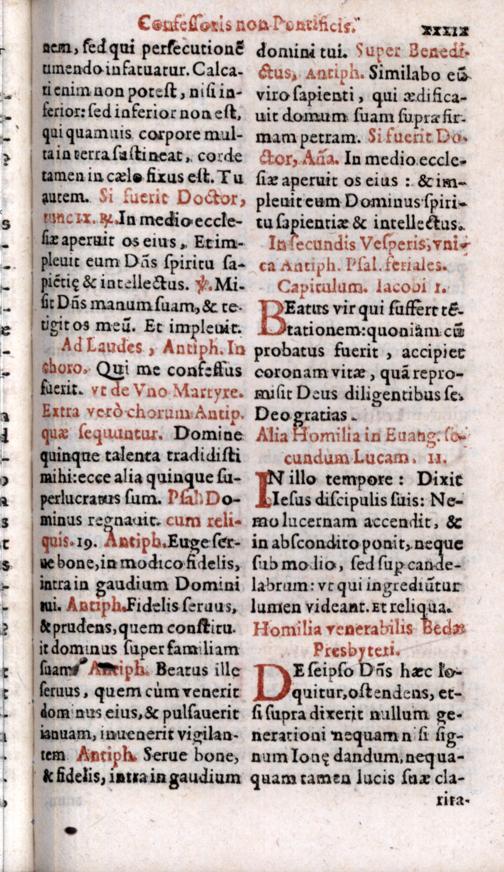 Confessoris non Pontificis.
XXXIX
nem, sed qui persecutionē
timendo infatuatur. Calca-
ri enim non potest, nisi in-
ferior: sed inferior non est,
qui quamuis corpore mul-
ta in terra sustineat, corde
tamen in cælo fixus est. Tu
autem. Si fuerit Doctor,
tunc ix. ℟. In medio eccle-
siæ aperuit os eius, Et im-
pleuit eum Dn̄s spiritu sa-
piētię & intellectus. ℣. Mi-
sit Dn̄s manum suam, & te-
tigit os meū. Et impleuit.
Ad Laudes, Antiph. In
choro. Qui me confessus
fuerit. vt de Vno Martyre.
Extra verò chorum Antip.
quæ sequuntur. Domine
quinque talenta tradidisti
mihi: ecce alia quinque su-
perlucratus sum. Psal. Do-
minus regnauit. cum reli-
quis. 19. Antiph. Euge ser-
ue bone, in modico fidelis,
intra in gaudium Domini
tui. Antiph. Fidelis seruus,
& prudens, quem constitu.
it dominus super familiam
suam Antiph. Beatus ille
seruus, quem cùm venerit
dominus eius, & pulsauerit
ianuam, inuenerit vigilan-
tem Antiph. Serue bone,
& fidelis, intra in gaudium
domini tui. Super Benedi-
ctus, Antiph. Similabo eū
viro sapienti, qui ædifica-
uit domum suam supra fir-
mam petram. Si fuerit Do-
ctor, Aña. In medio eccle-
siæ aperuit os eius: & im-
pleuit eum Dominus spiri-
tu sapientiæ & intellectus.
In secundis Vesperis, vni-
ca Antiph. Psal. feriales.
Capitulum. Iacobi 1.
BEatus vir qui suffert tē-
tationem: quoniàm cū
probatus fuerit, accipiet
coronam vitæ, quā repro-
misit Deus diligentibus se.
Deo gratias.
Alia Homilia in Euang. se-
cundum Lucam. 11.
IN illo tempore: Dixit
Iesus discipulis suis: Ne-
mo lucernam accendit, &
in abscondito ponit, neque
sub modio, sed sup cande-
labrum: vt qui ingrediūtur
lumen videant. Et reliqua.
Homilia venerabilis Bedæ
Presbyteri.
DE seipso Dn̄s hæc lo-
quitur, ostendens, et-
si supra dixerit nullum ge-
nerationi nequam nisi sig-
num Ionę dandum, nequa-
quam tamen lucis suæ cla-
rita-